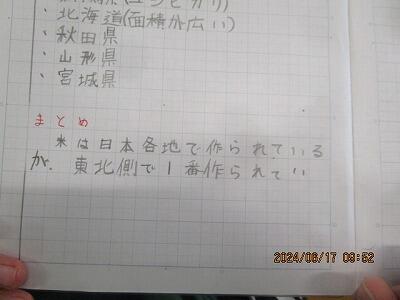 (コシヒカリ)
・北海道(面積が広い)
・秋田県
・山形県
・宮城県
まとめ
米は日本各地で作られている
が、東北側で1番作られてい
2024/06/17 09:52